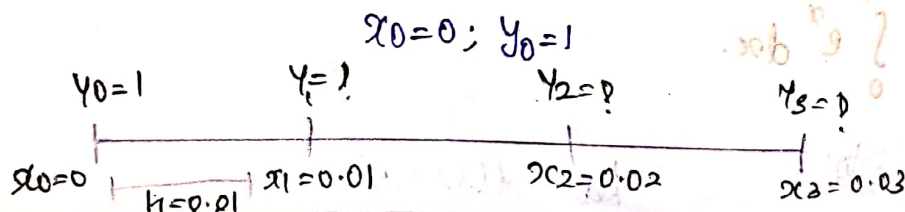 x0=0; y0=1
y0=1 y1=? y2=? y3=?
x0=0 h=0.01 x1=0.01 x2=0.02 x3=0.03